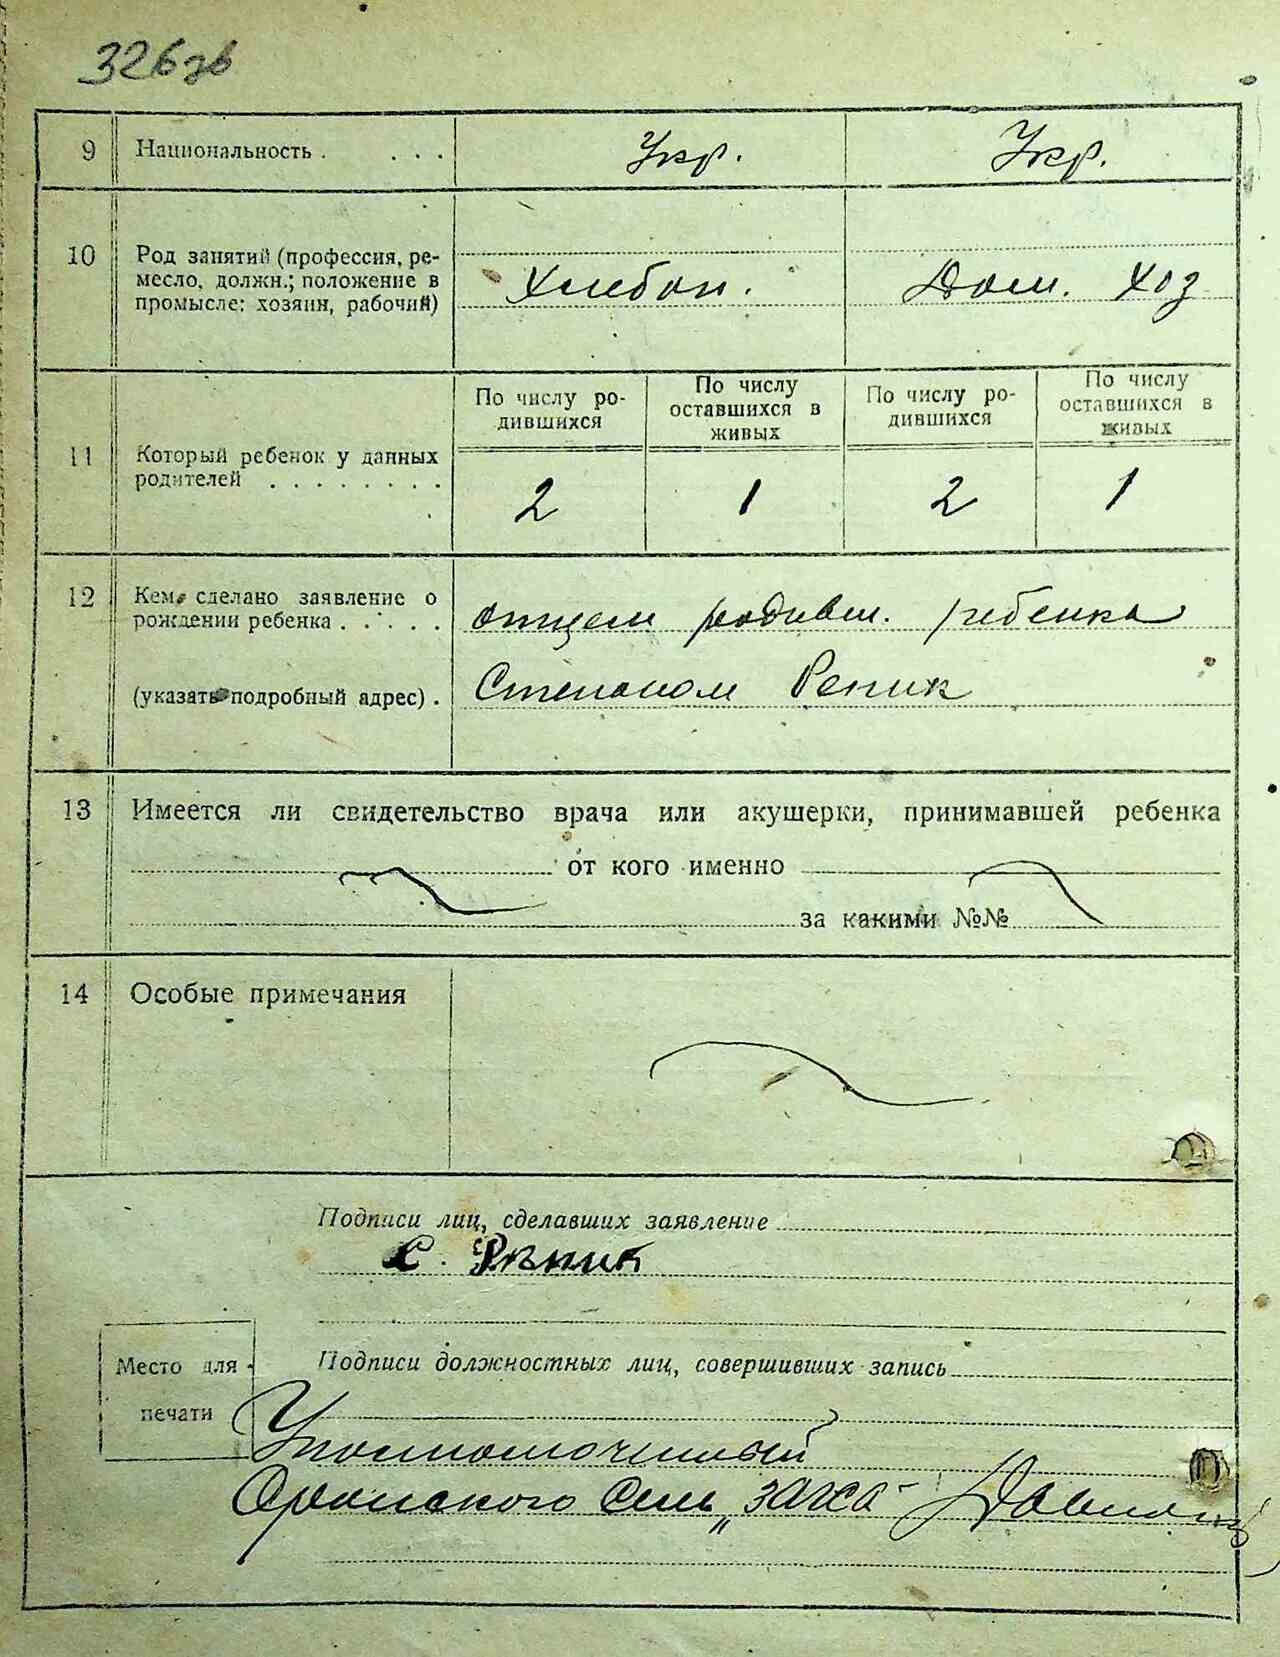 326 зв
9 Национальность . . . . Укр. Укр.
10 Род занятий (профессия, ре-
месло, должн.; положение в
промысле: хозяин, рабочий) Хлебоп. Дом. хоз
По числу ро-
дившихся
По числу
оставшихся в
живых
По числу ро-
дившихся
По числу
оставшихся в
живых
11 Который ребенок у данных
родителей . . . . . . . . 2 1 2 1
12 Кем сделано заявление о
рождении ребенка . . . . . отцем родивш. ребенка
(указать подробный адрес) . Степаном Репик
13 Имеется ли свидетельство врача или акушерки, принимавшей ребенка
от кого именно
за какими №№
14 Особые примечания
Подписи лиц, сделавших заявление
С. Рѣпик
Место для
печати
Подписи должностных лиц, совершивших запись
Уполномоченный
сель „загса"